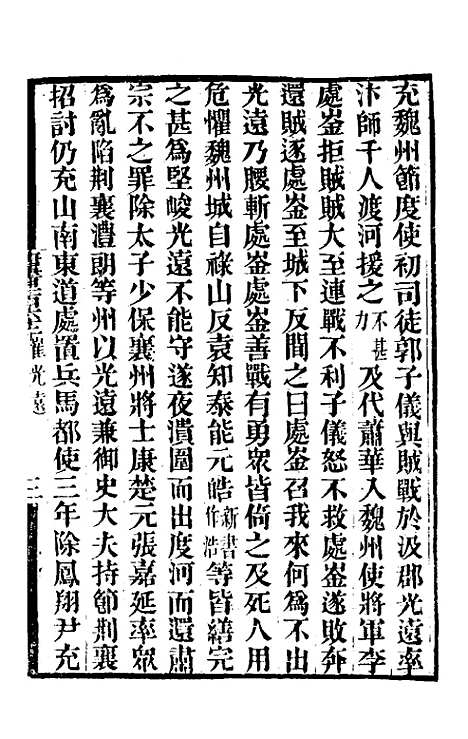 充魏州節度使初司徒郭子儀與賊戰於汲郡光遠率
汴師千人渡河援之不甚力及代蕭華入魏州使將軍李
處崟拒賊賊大至連戰不利子儀怒不救處崟遂敗奔
還賊逐處崟至城下反間之曰處崟召我來何為不出
光遠乃腰斬處崟處崟善戰有勇眾皆倚之及死人用
危懼魏州城自祿山反袁知泰能元皓新書作浩等皆繕完
之甚為堅峻光遠不能守遂夜潰圍而出度河而還肅
宗不之罪除太子少保襄州將士康楚元張嘉延率眾
為亂陷荆襄澧朗等州以光遠兼御史大夫持節荆襄
招討仍充山南東道處置兵馬都使三年除鳳翔尹充
崔光遠